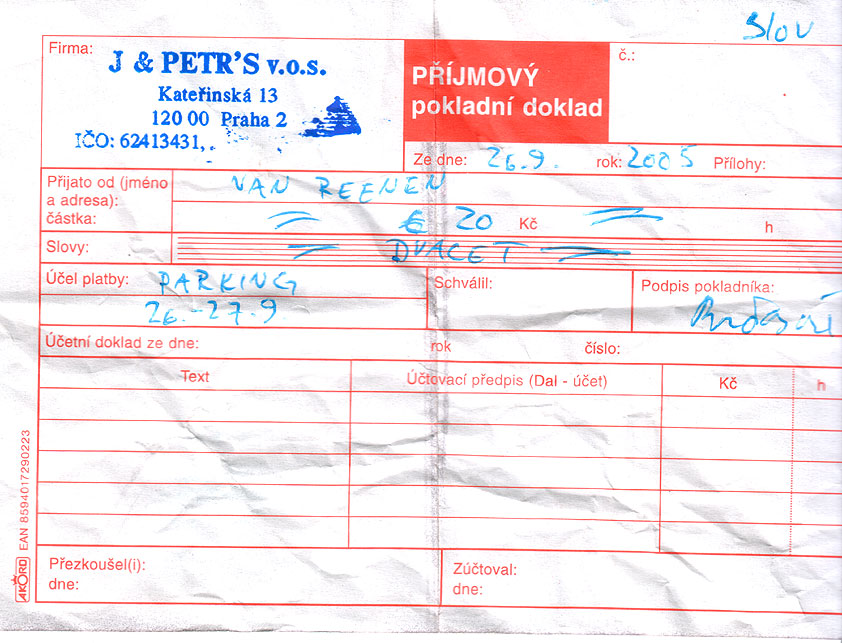 Slov
Firma:
J & PETR'S v.o.s.
Kateřinská 13
120 00 Praha 2
IČO: 62413431,
PŘÍJMOVÝ
pokladní doklad
č.:
Ze dne: 26.9. rok: 2005 Přílohy:
Přijato od (jméno
a adresa):
VAN REENEN
částka: € 20 Kč h
Slovy: DVACET
Účel platby: PARKING
26.-27.9
Schválil:
Podpis pokladníka:
Účetní doklad ze dne: rok číslo:
Text Účtovací předpis (Dal - účet) Kč h
Přezkoušel(i):
dne:
Zúčtoval:
dne:
AKORD EAN 8594017290223